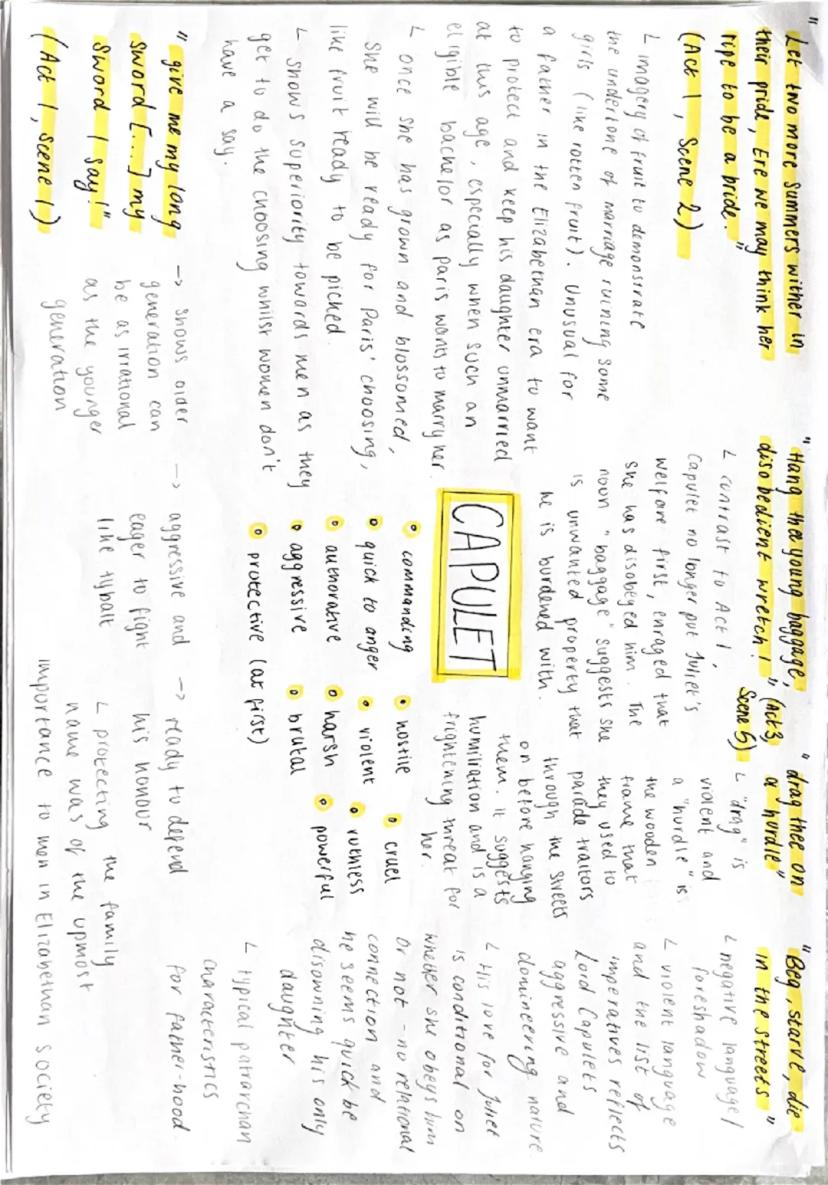 "Let two more summers wither in
their pride, Ere we may think her
ripe to be a bride."
(Act 1, Scene 2)
L imagery of fruit to demonstrate
the undertone of marriage ruining some
girls (like rotten fruit). Unusual for
a father in the Elizabethan era to want
to protect and keep his daughter unmarried
at this age, especially when such an
eligible bachelor as paris wants to marry her.
L once she has grown and blossomed,
she will be ready for Paris' choosing,
like fruit ready to be picked.
L shows superiority towards men as they
get to do the choosing whilst women don't
have a say.
"Hang thee young baggage,
disobedient wretch!" (Act 3,
Scene 5)
L contrast to Act 1,
Capulet no longer put Juliet's
welfare first, enraged that
she has disobeyed him. The
noun "baggage" suggests she
is unwanted property that
he is burdened with.
"drag thee on
a hurdle"
L "drag" is
violent and
a "hurdle" is
the wooden
frame that
they used to
parade traitors
through the streets
on before hanging
them. It suggests
humiliation and is a
frightening threat for
her.
"Beg, starve, die
in the streets"
L negative language/
foreshadow
L violent language
and the list of
imperatives reflects
Lord Capulets
aggressive and
domineering nature
L His love for Juliet
is conditional on
whether she obeys him
or not - no relational
connection and
he seems quick be
disowning his only
daughter
L typical patriarchan
characteristics
for father-hood.
CAPULET
• commanding • hostile • cruel
• quick to anger • violent • ruthless
• authorative • harsh • powerful
• aggressive • brutal
• protective (at first)
"give me my long
sword [...] my
sword I say!"
(Act 1, scene 1)
-> shows older
generation can
be as irrational
as the younger
generation
-> aggressive and
eager to fight
like tybalt
-> ready to defend
his honour
L protecting the family
name was of the upmost
importance to men in Elizabethan society